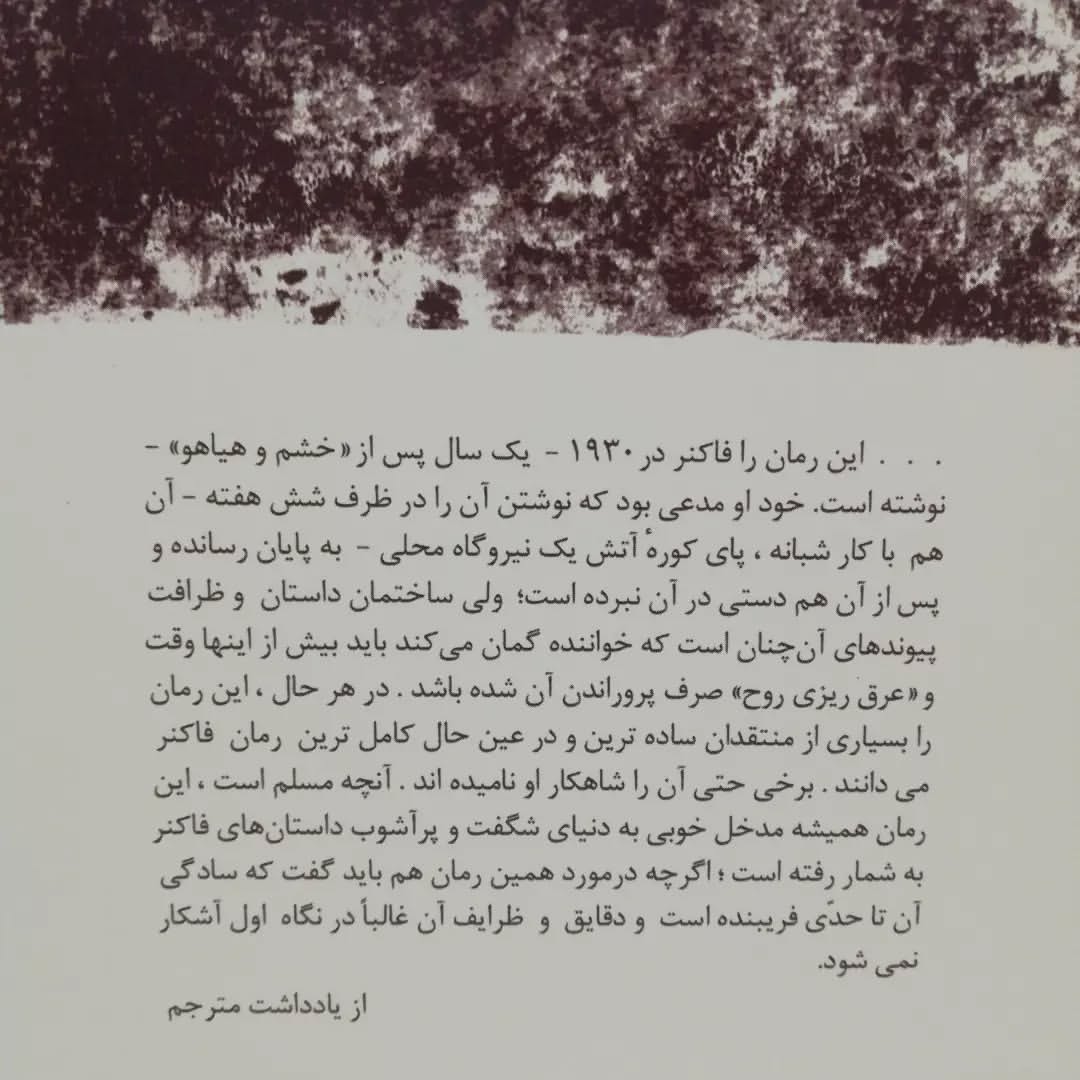 . . . این رمان را فاکنر در ۱۹۳۰ - یک سال پس از «خشم و هیاهو» -
نوشته است. خود او مدعی بود که نوشتن آن را در ظرف شش هفته - آن
هم با کار شبانه ، پای کورهٔ آتش یک نیروگاه محلی - به پایان رسانده و
پس از آن هم دستی در آن نبرده است؛ ولی ساختمان داستان و ظرافت
پیوندهای آن‌چنان است که خواننده گمان می‌کند باید بیش از اینها وقت
و «عرق ریزی روح» صرف پروراندن آن شده باشد . در هر حال ، این رمان
را بسیاری از منتقدان ساده ترین و در عین حال کامل ترین رمان فاکنر
می دانند . برخی حتی آن را شاهکار او نامیده اند . آنچه مسلم است ، این
رمان همیشه مدخل خوبی به دنیای شگفت و پرآشوب داستان‌های فاکنر
به شمار رفته است ؛ اگرچه درمورد همین رمان هم باید گفت که سادگی
آن تا حدّی فریبنده است و دقایق و ظرایف آن غالباً در نگاه اول آشکار
نمی شود.
از یادداشت مترجم